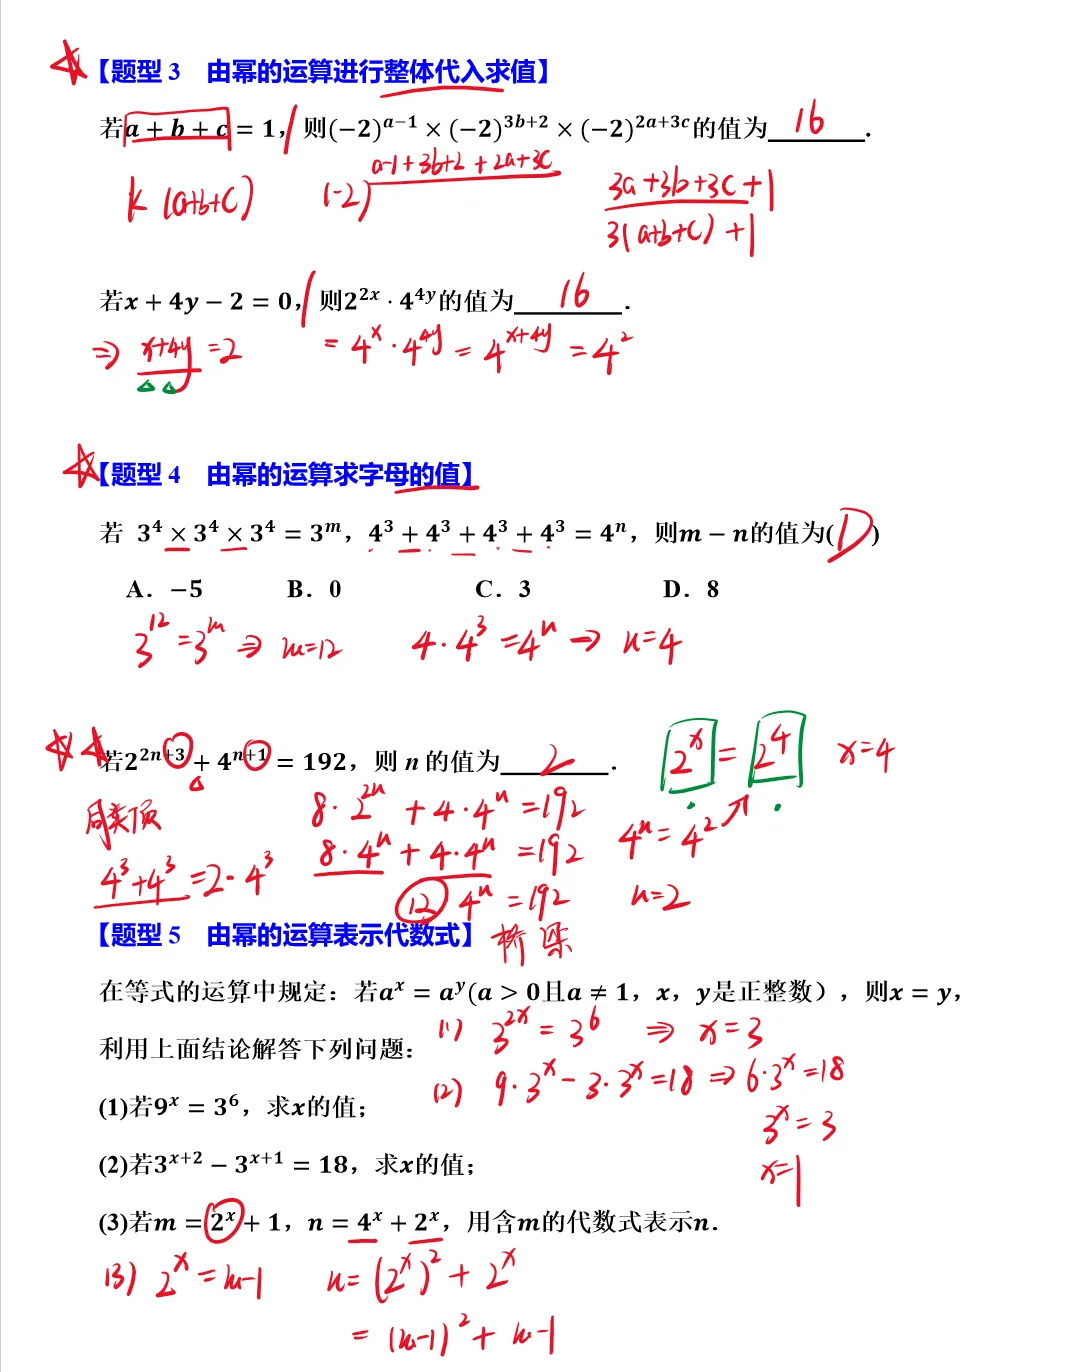 【题型 3 由幂的运算进行整体代入求值】
若a + b + c = 1，则(−2)^{a−1} × (−2)^{3b+2} × (−2)^{2a+3c}的值为 16 .
k (a+b+c) (-2)^{a-1+3b+2+2a+3c} 3a+3b+3c+1
3(a+b+c)+1
若x + 4y − 2 = 0，则2^{2x} · 4^{4y}的值为 16 .
⇒ x+4y=2 = 4^x · 4^{4y} = 4^{x+4y} = 4^2
【题型 4 由幂的运算求字母的值】
若 3^4 × 3^4 × 3^4 = 3^m，4^3 + 4^3 + 4^3 + 4^3 = 4^n，则m − n的值为( D )
A．−5 B．0 C．3 D．8
3^{12} = 3^m ⇒ m=12 4·4^3 = 4^n ⇒ n=4
若2^{2n+3} + 4^{n+1} = 192，则 n 的值为 2 .
2^x = 2^4 x=4
同类项 8·2^{2n} + 4·4^n = 192
8·4^n + 4·4^n = 192 4^n = 4^2
4^3+4^3 = 2·4^3 12 4^n = 192 n=2
【题型 5 由幂的运算表示代数式】 桥梁
在等式的运算中规定：若a^x = a^y(a > 0且a ≠ 1，x，y是正整数），则x = y，
(1) 3^{2x} = 3^6 ⇒ x=3
利用上面结论解答下列问题：
(2) 9·3^x − 3·3^x = 18 ⇒ 6·3^x = 18
(1)若9^x = 3^6，求x的值；
3^x = 3
(2)若3^{x+2} − 3^{x+1} = 18，求x的值；
x=1
(3)若m = 2^x + 1，n = 4^x + 2^x，用含m的代数式表示n．
(3) 2^x = m-1 n = (2^x)^2 + 2^x
= (m-1)^2 + m-1